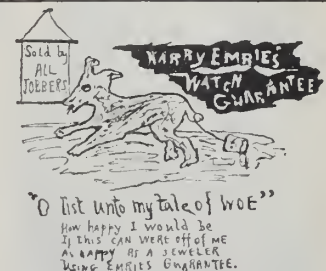 Sold by
ALL
JOBBERS
HARRY EMBRIE'S
WATCH
GUARANTEE
"O list unto my tale of WOE"
How happy I would be
If this CAN WERE off of ME
AS HAPPY AS A JEWELER
USING EMRIES GUARANTEE.